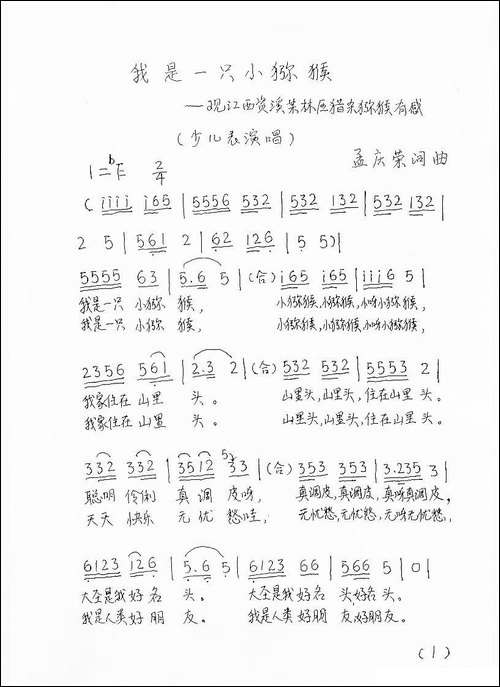 我是一只小猕猴
——观江西资溪某林区猎杀猕猴有感
(少儿表演唱)
孟庆荣词曲
1=bE 2/4
(iiii i65 | 5556 532 | 532 132 | 532 132 |
2 5 | 561 2 | 62 126 | 5 5) |
5555 63 | 5.6 5 | (合) i65 i65 | iii6 5 |
我是一只 小猕 猴, 小猕猴,小猕猴,小呀小猕猴,
我是一只 小猕 猴, 小猕猴,小猕猴,小呀小猕猴,
2356 561 | 2.3 2 | (合) 532 532 | 5553 2 |
我家住在 山里 头。 山里头,山里头,住在山里 头。
我家住在 山里 头。 山里头,山里头,住在山里 头。
332 332 | 3512 5 33 | (合) 353 353 | 3.235 3 |
聪明 伶俐 真调 皮呀, 真调皮,真调皮,真呀真调皮,
天天 快乐 无忧 愁哇, 无忧愁,无忧愁,无呀无忧愁,
6123 126 | 5.6 5 | 6123 66 | 566 5 | 0 |
大圣是我 好名 头。 大圣是我 好名 头,好名 头。
我是人类 好朋 友。 我是人类 好朋 友,好朋 友。
(1)